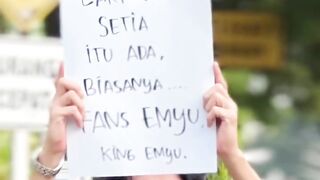 SETIA
ITU ADA,
BIASANYA....
FANS EMYU.
KING EMYU.